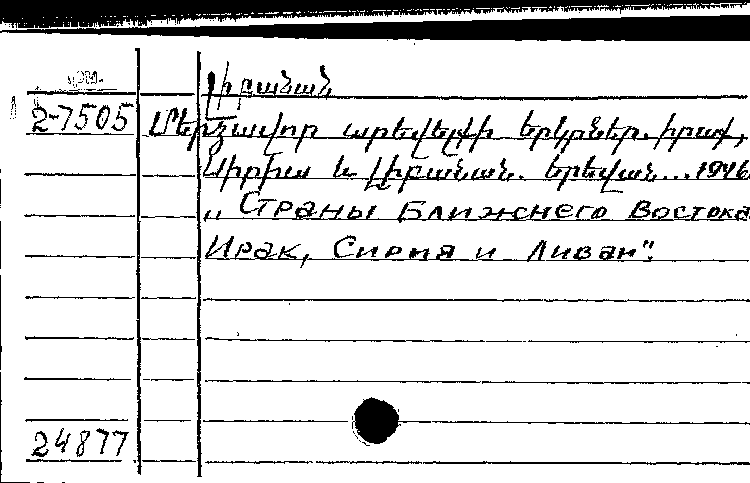 Լիբանան
2-7505 Մերձավոր արևելքի երկրներ. Իրաք,
Սիրիա և Լիբանան. Երևան...1946
„ Страны Ближнего Востока
Ирак, Сирия и Ливан".
24877